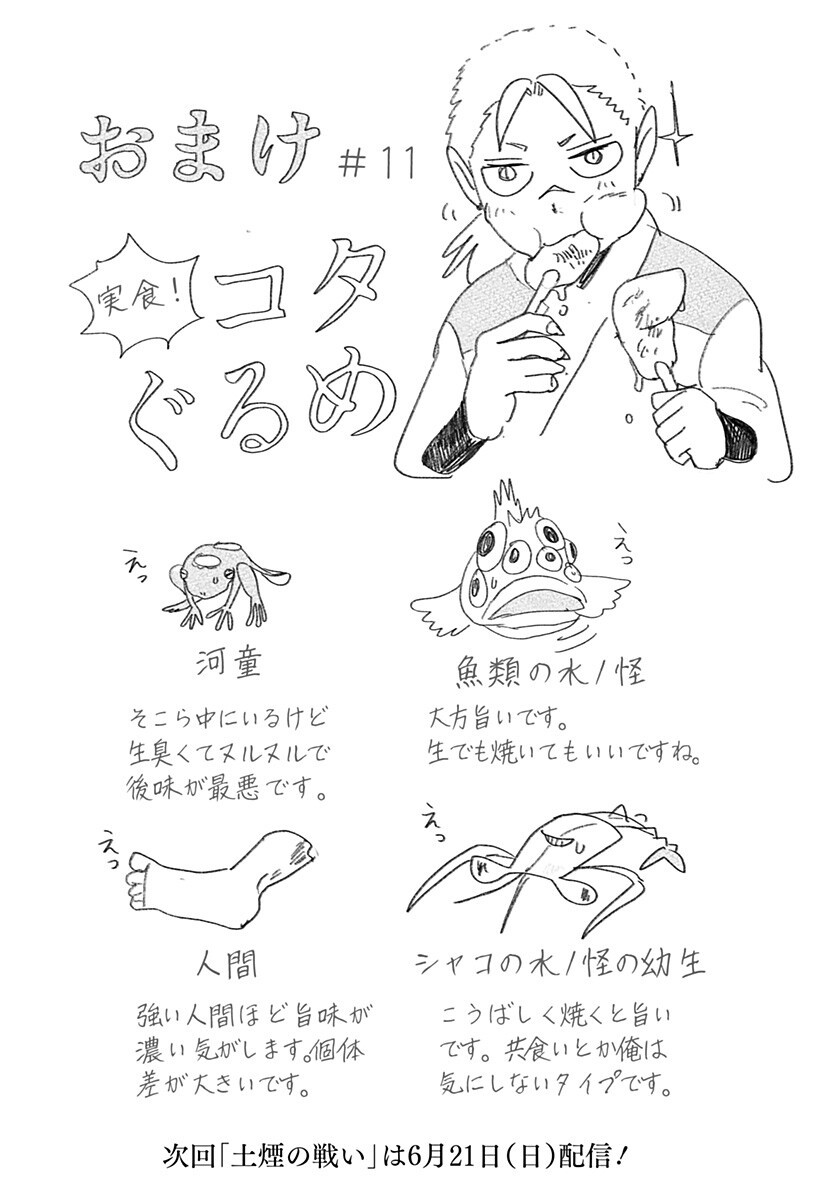 おまけ #11
実食！
コタ
ぐるめ
えっ
河童
そこら中にいるけど
生臭くてヌルヌルで
後味が最悪です。
えっ
魚類の水ノ怪
大方旨いです。
生でも焼いてもいいですね。
えっ
人間
強い人間ほど旨味が
濃い気がします。個体
差が大きいです。
えっ
シャコの水ノ怪の幼生
こうばしく焼くと旨い
です。共食いとか俺は
気にしないタイプです。
次回「土煙の戦い」は6月21日（日）配信！